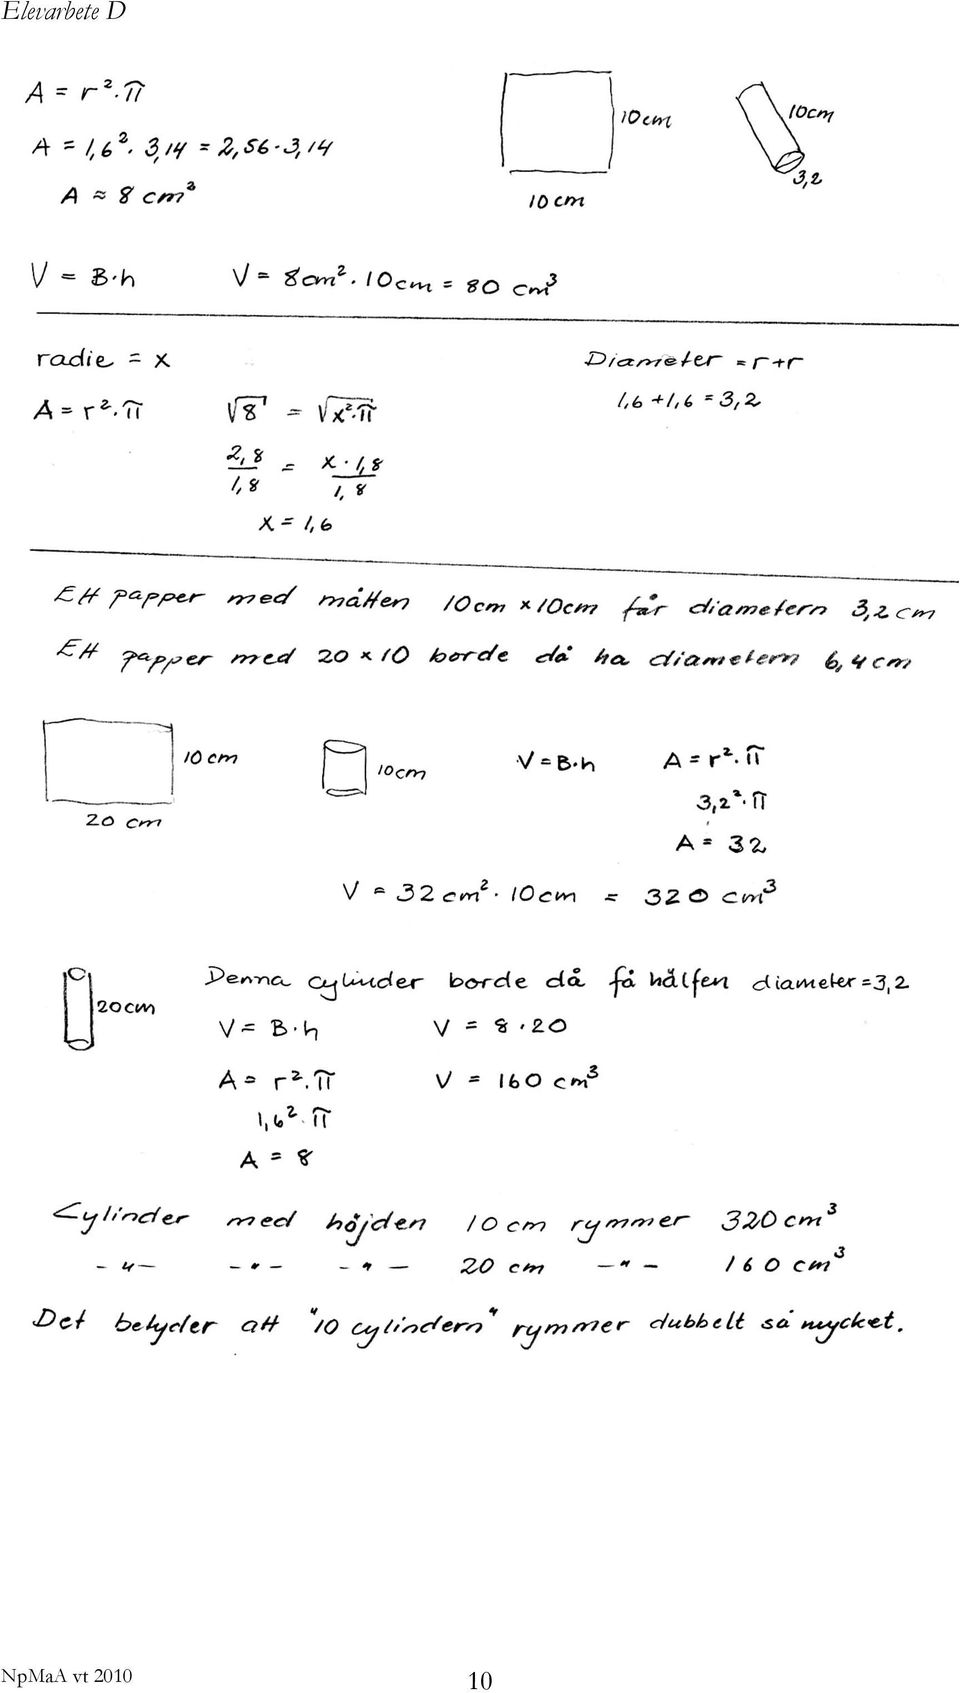 Elevarbete D
A = r²·π
A = 1,6²· 3,14 = 2,56·3,14
A ≈ 8 cm²
10cm
10 cm
10cm
3,2
V = B·h V = 8cm²·10cm = 80 cm³
radie = x
A = r²·π √8 = √x²·π
2,8/1,8 = x·1,8/1,8
x = 1,6
Diameter = r+r
1,6+1,6 = 3,2
Ett papper med måtten 10cm x 10cm får diametern 3,2 cm
Ett papper med 20 x 10 borde då ha diametern 6,4 cm
10 cm
20 cm
10cm
V = B·h A = r²·π
3,2²·π
A = 32
V = 32 cm²·10cm = 320 cm³
20cm
Denna cylinder borde då få hälfen diameter = 3,2
V = B·h V = 8·20
A = r²·π V = 160 cm³
1,6²·π
A = 8
Cylinder med höjden 10 cm rymmer 320 cm³
-"- -"- -"- 20 cm -"- 160 cm³
Det betyder att "10 cylindern" rymmer dubbelt så mycket.
NpMaA vt 2010
10